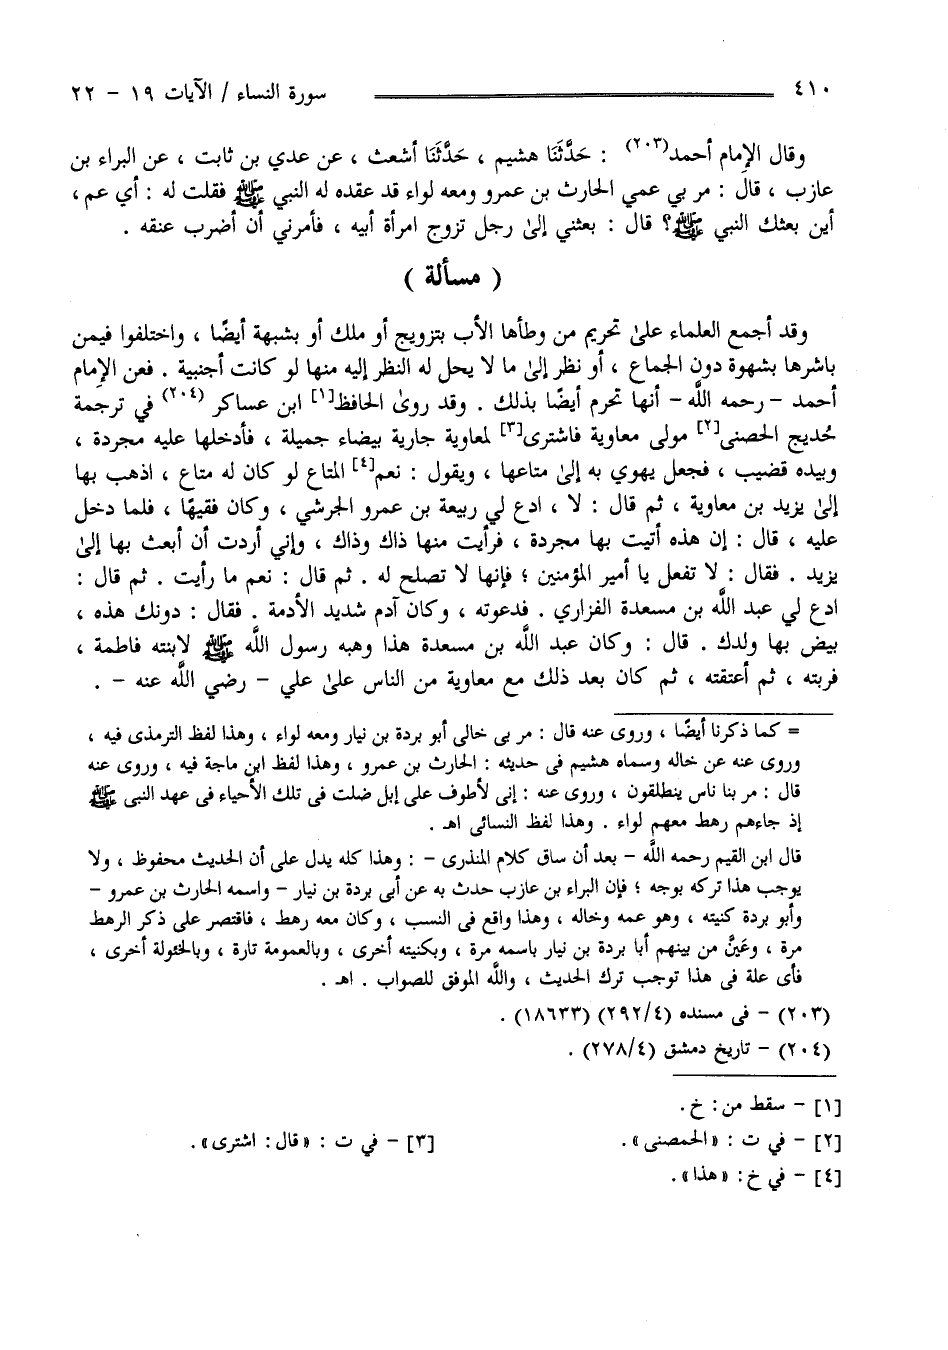 ٤١٠ سورة النساء / الآيات ١٩ - ٢٢
وقال الإمام أحمد(٢٠٣) : حَدَّثَنَا هشيم ، حَدَّثَنَا أشعث ، عن عدي بن ثابت ، عن البراء بن
عازب ، قال : مر بي عمي الحارث بن عمرو ومعه لواء قد عقده له النبي ﷺ فقلت له : أي عم ،
أين بعثك النبي ﷺ؟ قال : بعثني إلىٰ رجل تزوج امرأة أبيه ، فأمرني أن أضرب عنقه .
( مسألة )
وقد أجمع العلماء علىٰ تحريم من وطأها الأب بتزويج أو ملك أو بشبهة أيضًا ، واختلفوا فيمن
باشرها بشهوة دون الجماع ، أو نظر إلىٰ ما لا يحل له النظر إليه منها لو كانت أجنبية . فعن الإمام
أحمد - رحمه اللَّه - أنها تحرم أيضًا بذلك . وقد روىٰ الحافظ[١] ابن عساكر (٢٠٤) في ترجمة
خُديج الحصنى[٢] مولى معاوية فاشترى[٣] لمعاوية جارية بيضاء جميلة ، فأدخلها عليه مجردة ،
وبيده قضيب ، فجعل يهوي به إلىٰ متاعها ، ويقول : نعم[٤] المتاع لو كان له متاع ، اذهب بها
إلىٰ يزيد بن معاوية ، ثم قال : لا ، ادع لي ربيعة بن عمرو الجرشي ، وكان فقيهًا ، فلما دخل
عليه ، قال : إن هذه أتيت بها مجردة ، فرأيت منها ذاك وذاك ، وإني أردت أن أبعث بها إلىٰ
يزيد . فقال : لا تفعل يا أمير المؤمنين ؛ فإنها لا تصلح له . ثم قال : نعم ما رأيت . ثم قال :
ادع لي عبد اللَّه بن مسعدة الفزاري . فدعوته ، وكان آدم شديد الأدمة . فقال : دونك هذه ،
بيض بها ولدك . قال : وكان عبد اللَّه بن مسعدة هذا وهبه رسول اللَّه ﷺ لابنته فاطمة ،
فربته ، ثم أعتقته ، ثم كان بعد ذلك مع معاوية من الناس علىٰ علي - رضي اللَّه عنه - .
= كما ذكرنا أيضًا ، وروى عنه قال : مر بى خالى أبو بردة بن نيار ومعه لواء ، وهذا لفظ الترمذى فيه ،
وروى عنه عن خاله وسماه هشيم فى حديثه : الحارث بن عمرو ، وهذا لفظ ابن ماجة فيه ، وروى عنه
قال : مر بنا ناس ينطلقون ، وروى عنه : إنى لأطوف على إبل ضلت فى تلك الأحياء فى عهد النبى ﷺ
إذ جاءهم رهط معهم لواء . وهذا لفظ النسائى اهـ .
قال ابن القيم رحمه اللَّه - بعد أن ساق كلام المنذرى - : وهذا كله يدل على أن الحديث محفوظ ، ولا
يوجب هذا تركه بوجه ؛ فإن البراء بن عازب حدث به عن أبى بردة بن نيار - واسمه الحارث بن عمرو -
وأبو بردة كنيته ، وهو عمه وخاله ، وهذا واقع فى النسب ، وكان معه رهط ، فاقتصر على ذكر الرهط
مرة ، وعَيَّن من بينهم أبا بردة بن نيار باسمه مرة ، وبكنيته أخرى ، وبالعمومة تارة ، وبالخئولة أخرى ،
فأى علة فى هذا توجب ترك الحديث ، واللَّه الموفق للصواب . اهـ .
(٢٠٣) - فى مسنده (٢٩٢/٤) (١٨٦٣٣) .
(٢٠٤) - تاريخ دمشق (٢٧٨/٤) .
[١] - سقط من: خ .
[٢] - في ت : «الحمصنى» . [٣] - في ت : «قال: اشترى» .
[٤] - في خ: «هذا» .